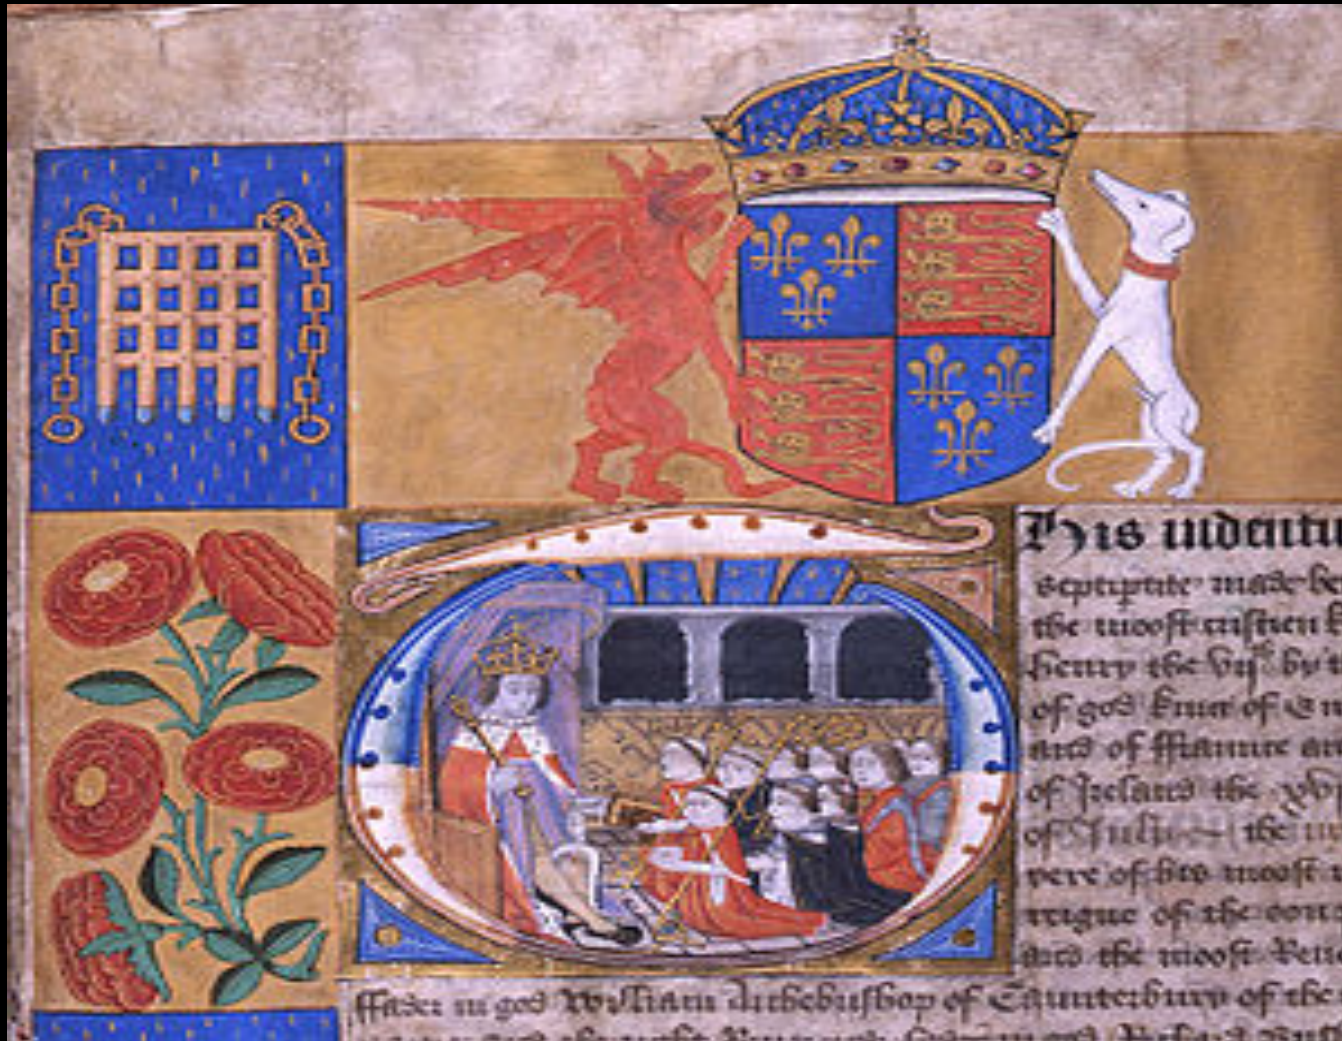 his indentu
septiptite made be
the moost cristien k
henry the vijth by t
of god kyng of En
and of ffraunce an
of Irland the xvj
of Julie the
yere of his moost n
reigne of the
and the moost Reue
ffader in god William Archebusshop of Caunterbury of the